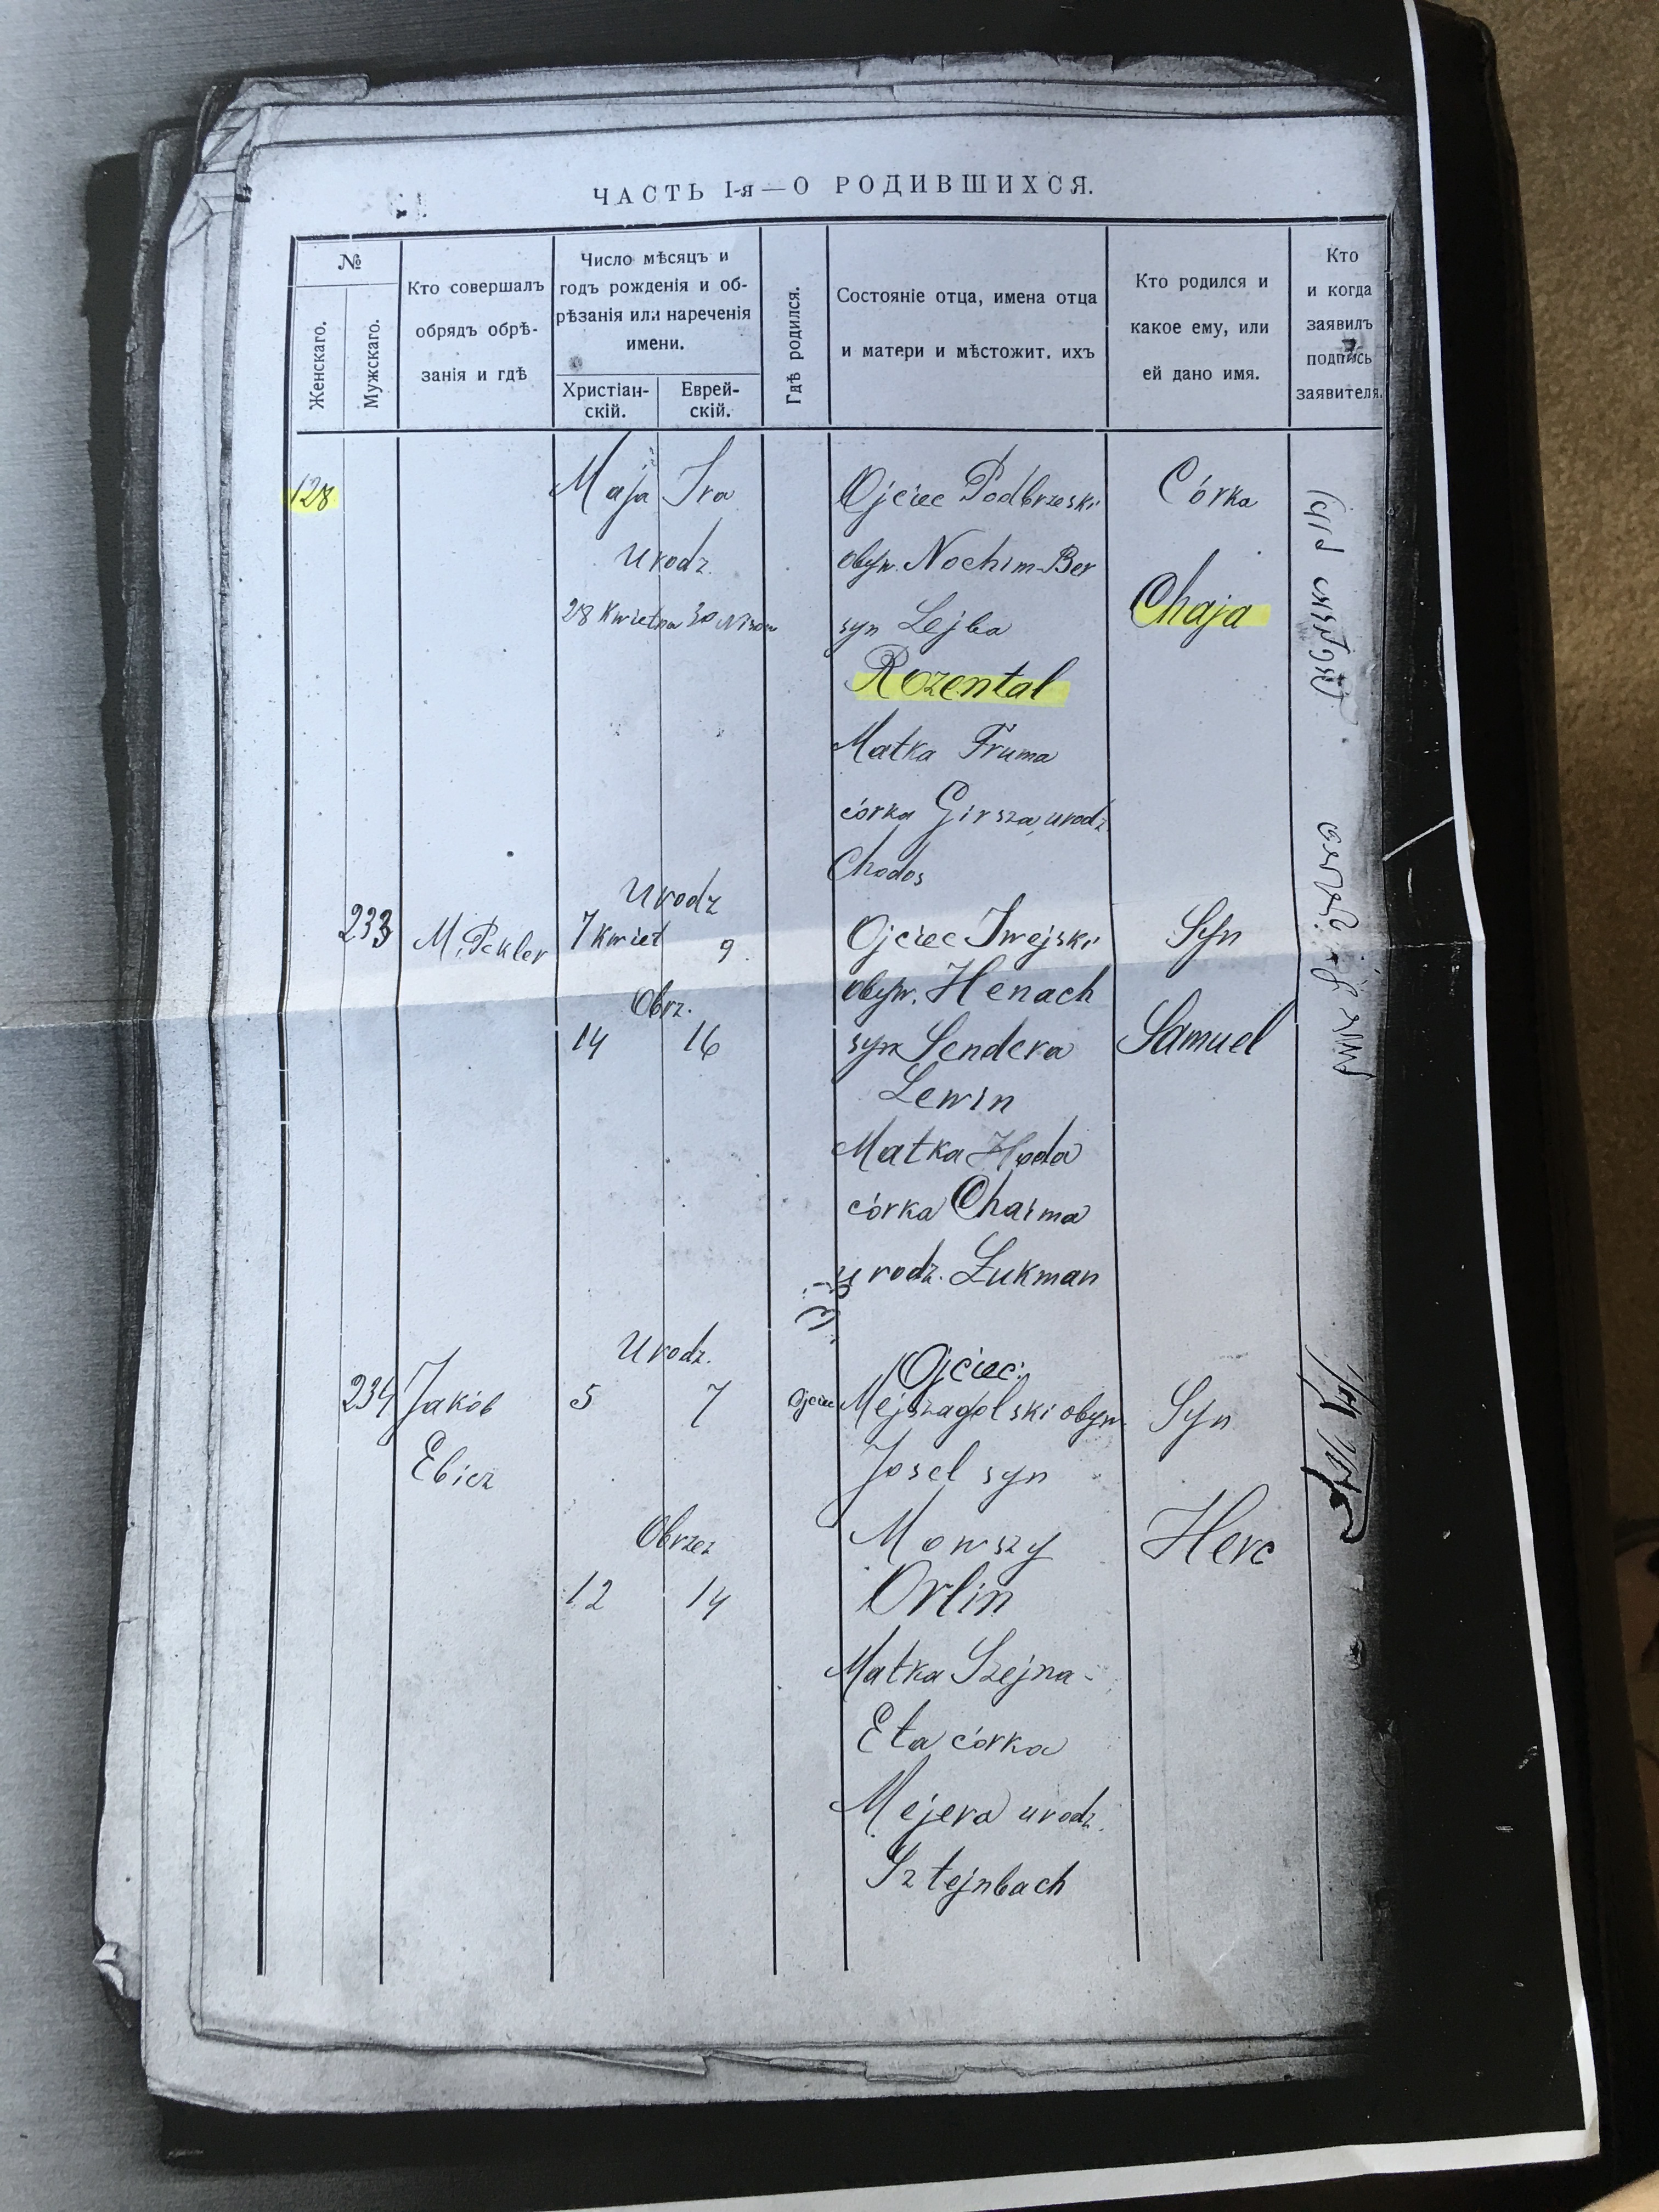 ЧАСТЬ I-я — О РОДИВШИХСЯ.
№
Женскаго.
Мужскаго.
Кто совершалъ
обрядъ обрѣ-
занія и гдѣ
Число мѣсяцъ и
годъ рожденія и об-
рѣзанія или нареченія
имени.
Христіан-
скій.
Еврей-
скій.
Гдѣ родился.
Состояніе отца, имена отца
и матери и мѣстожит. ихъ
Кто родился и
какое ему, или
ей дано имя.
Кто
и когда
заявилъ
подпись
заявителя.
128
Maja Jra
Urodz.
28 Kwietna 30 Nisan
Ojciec Podbrzeski
obyw. Nochim-Ber
syn Lejba
Rozental
Matka Fruma
córka Girsza, urodz.
Chodos
Córka
Chaja
233
M. Pekler
Urodz
7 Kwiet 9.
Obrz.
14 16
Ojciec Iwejski
obyw. Henach
syn Sendera
Lewin
Matka Hoda
córka Chaima
urodz. Lukman
Syn
Samuel
234
Jakób
Ebicz
Urodz.
5 7
Obrzez
12 14
Ojciec
Ojciec:
Mejszagolski obyw.
Josel syn
Mowszy
Orlin
Matka Szejna-
Eta córka
Mejera urodz.
Sztejnbach
Syn
Herc